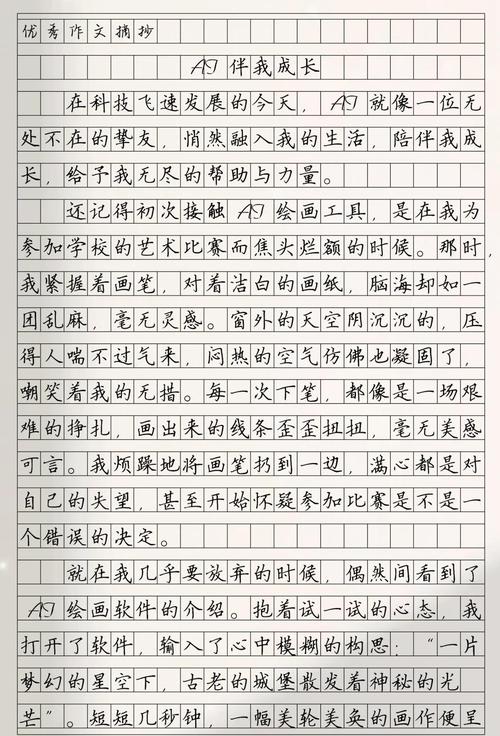 优秀作文摘抄
AI伴我成长
在科技飞速发展的今天，AI就像一位无
处不在的挚友，悄然融入我的生活，陪伴我成
长，给予我无尽的帮助与力量。
还记得初次接触AI绘画工具，是在我为
参加学校的艺术比赛而焦头烂额的时候。那时，
我紧握着画笔，对着洁白的画纸，脑海却如一
团乱麻，毫无灵感。窗外的天空阴沉沉的，压
得人喘不过气来，闷热的空气仿佛也凝固了，
嘲笑着我的无措。每一次下笔，都像是一场艰
难的挣扎，画出来的线条歪歪扭扭，毫无美感
可言。我烦躁地将画笔扔到一边，满心都是对
自己的失望，甚至开始怀疑参加比赛是不是一
个错误的决定。
就在我几乎要放弃的时候，偶然间看到了
AI绘画软件的介绍。抱着试一试的心态，我
打开了软件，输入了心中模糊的构思：“一片
梦幻的星空下，古老的城堡散发着神秘的光
芒”。短短几秒钟，一幅美轮美奂的画作便呈